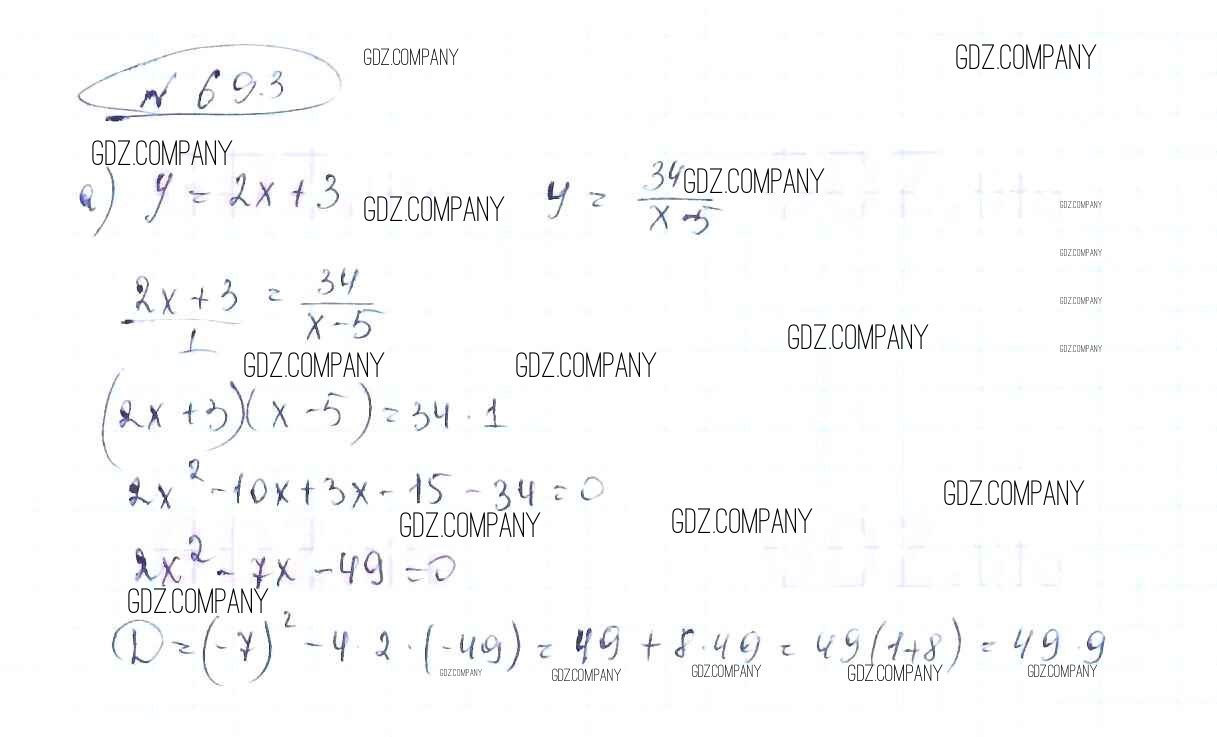 GDZ.COMPANY GDZ.COMPANY
№ 69.3
GDZ.COMPANY
а) y = 2x + 3 GDZ.COMPANY y = 34/(x - 5) GDZ.COMPANY
GDZ.COMPANY
GDZ.COMPANY
(2x + 3)/1 = 34/(x - 5) GDZ.COMPANY
GDZ.COMPANY
GDZ.COMPANY GDZ.COMPANY GDZ.COMPANY
(2x + 3)(x - 5) = 34 · 1
2x² - 10x + 3x - 15 - 34 = 0 GDZ.COMPANY
GDZ.COMPANY GDZ.COMPANY
2x² - 7x - 49 = 0
GDZ.COMPANY
D = (-7)² - 4 · 2 · (-49) = 49 + 8 · 49 = 49(1+8) = 49 · 9
GDZ.COMPANY GDZ.COMPANY GDZ.COMPANY GDZ.COMPANY GDZ.COMPANY